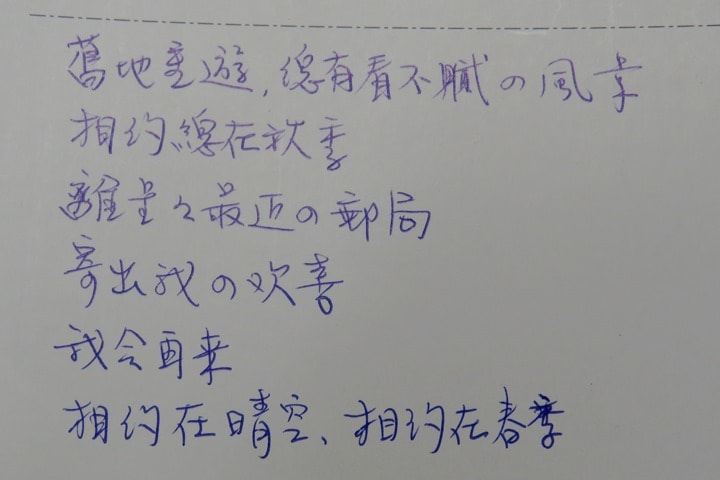 舊地重遊,總有看不膩の風景
相約總在秋季
離星々最近の郵局
寄出我の欢喜
我会再来
相約在晴空、相約在春季